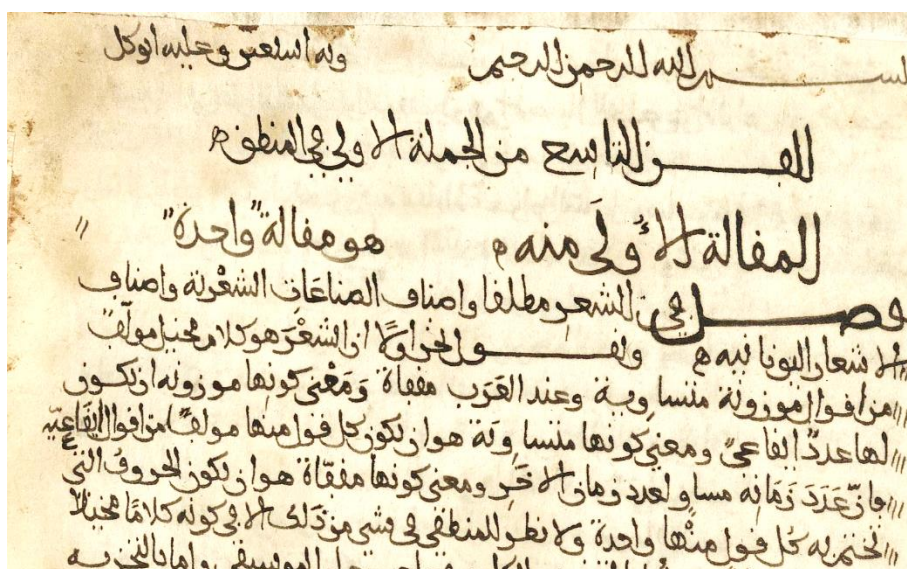 بسم الله الرحمن الرحيم وبه استعين وعليه اتوكل
الفن التاسع من الجملة الاولى في المنطق
المقالة الأولَى منه هو مقالة واحدة
فصل في الشعر مطلقا واصناف الصناعات الشعْرية واصناف
الاشعار اليونانيه ونقول نحن اولًا ان الشعْرَ هو كلام مخيل مولف
من اقوال موزونة متساوية وعند العَرَب مقفاة وَمَعْنى كونها موزونه ان تكون
لها عددٌ ايقاعيٌ ومعنى كونها متساوية هو ان يكون كل قول منها مولفًا من اقوال ايقاعيّه
فان عَدَدَ زَمَانه مساو لعدد زمان الاخَر ومعنى كونها مقفّاة هو ان يكون الحروف التي
تختم به كل قول منْها واحدة ولا نظر للمنطقي في شيى من ذَلك الا في كونه كلامًا مخيلًا
الموسيقى واما بالتجربه